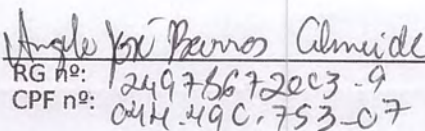 Angelo José Barros Almeida
RG nº: 249786672003-9
CPF nº: 044.490.753-07